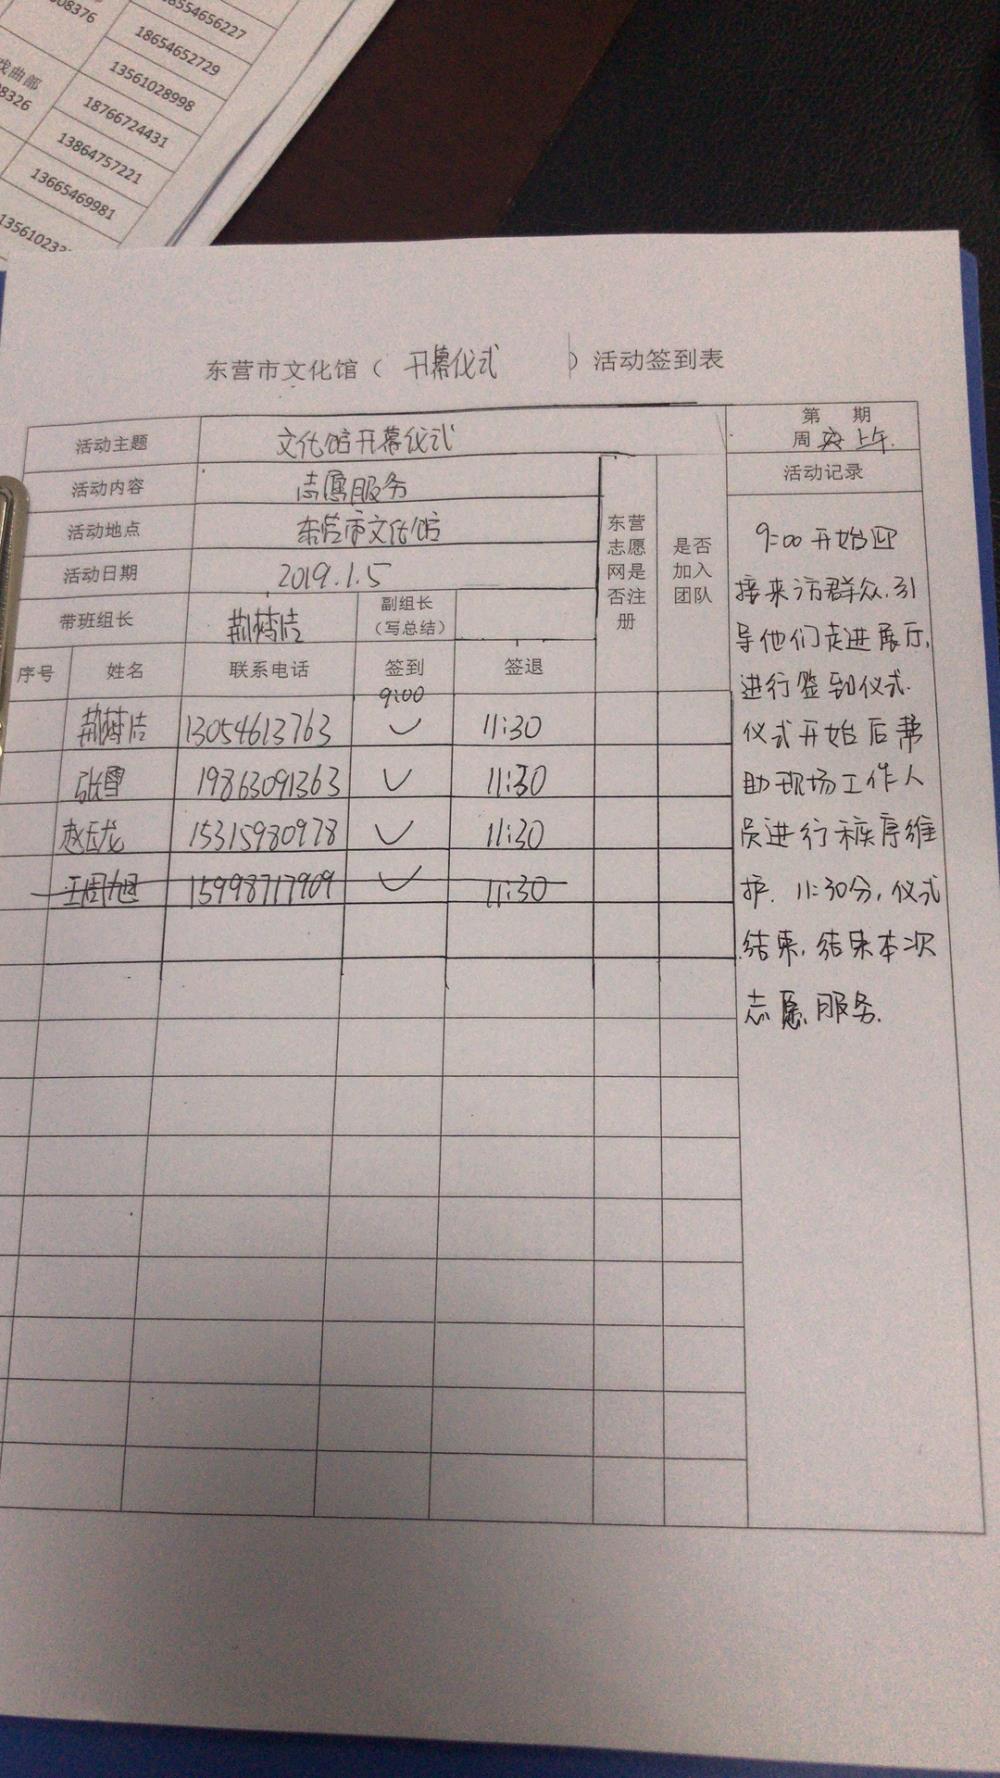 08376
8554656227
18654652729
13561028998
戏曲部
8326
18766724431
13864757221
13665469981
135610233
东营市文化馆（ 开幕仪式 ）活动签到表
活动主题 文化馆开幕仪式 第 期
周 上午.
活动内容 志愿服务 东营志愿网是否注册 是否加入团队 活动记录
活动地点 东营市文化馆
活动日期 2019.1.5
带班组长 荆梦洁 副组长（写总结）
序号 姓名 联系电话 签到 签退
9:00
荆梦洁 13054613763 ✓ 11:30
张雪 19863091363 ✓ 11:30
赵岳龙 15315980978 ✓ 11:30
王周旭 15998717909 ✓ 11:30
9:00 开始迎
接来访群众.引
导他们走进展厅,
进行签到仪式.
仪式开始后帮
助现场工作人
员进行秩序维
护. 11:30分,仪式
结束,结束本次
志愿服务.